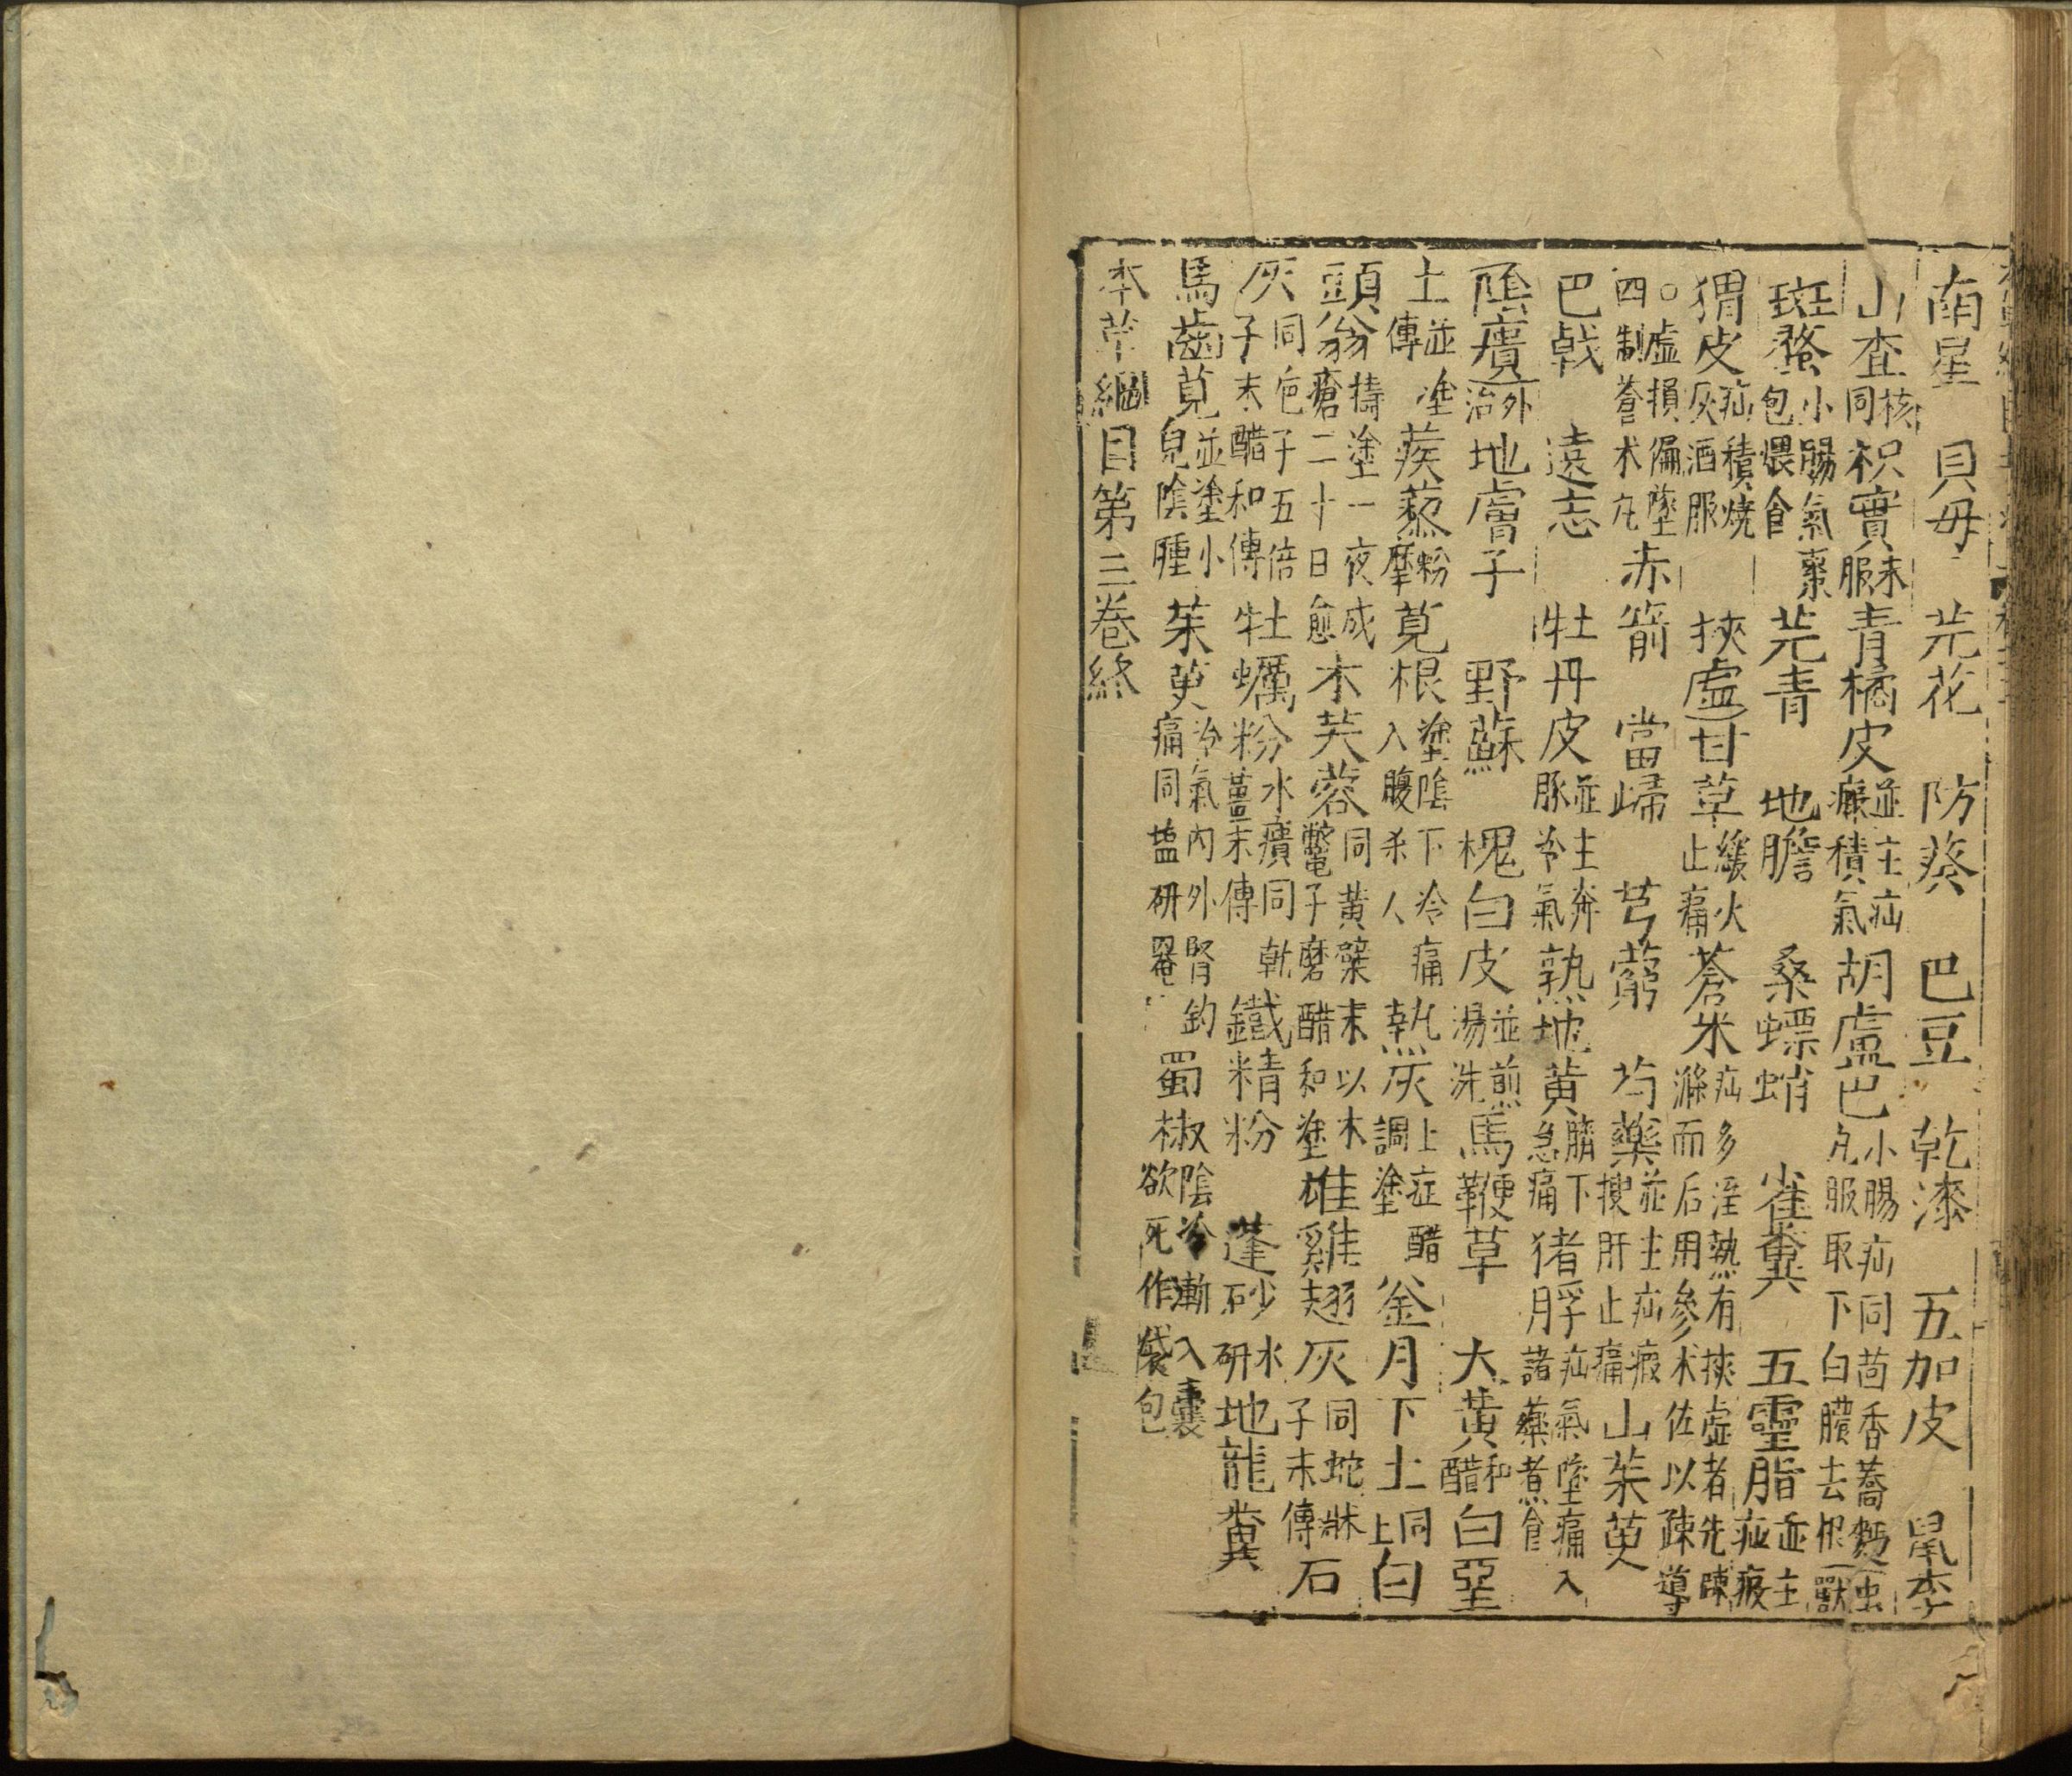 南星 貝母 芫花 防葵 巴豆 乾漆 五加皮 鼠李
山査核同 枳實末服 青橘皮並主疝癥積氣 胡盧巴小腸疝同茴香蕎麪丸服取下白膿去根 虫獸
斑蝥小腸氣棗包煨食 芫青 地膽 桑螵蛸 雀糞 五靈脂並主疝瘕
猬皮疝積燒灰酒服 挾虛 甘草緩火止痛 蒼术疝多溼熱有挾虛者先疎滌而后用參术佐以疎導
○虛損偏墜四制蒼术丸 赤箭 當歸 芎藭 芍藥並主疝瘕搜肝止痛 山茱萸
巴戟 遠志 牡丹皮並主奔豚冷氣 熟地黄臍下急痛 猪脬疝氣墜痛入諸藥煮食
陰㿉外治 地膚子 野蘇 槐白皮並煎湯洗 馬鞭草 大黄和醋 白堊
土並塗傅 蒺藜粉摩 莧根塗陰下冷痛入腹杀人 熱灰上症醋調塗 釜月下土同上 白
頭翁擣塗一夜成瘡二十日愈 木芙蓉同黄蘗末以木鼈子磨醋和塗 雄雞翅灰同蛇牀子末傅 石
灰同卮子五倍子末醋和傅 牡蠣粉水㿉同乾薑末傅 鐵精粉 蓬砂水研 地龍糞
馬齒莧並塗小兒陰腫 茱萸冷氣内外腎釣痛同塩研罨 蜀椒陰冷漸入囊欲死作袋包
本草綱目第三卷終